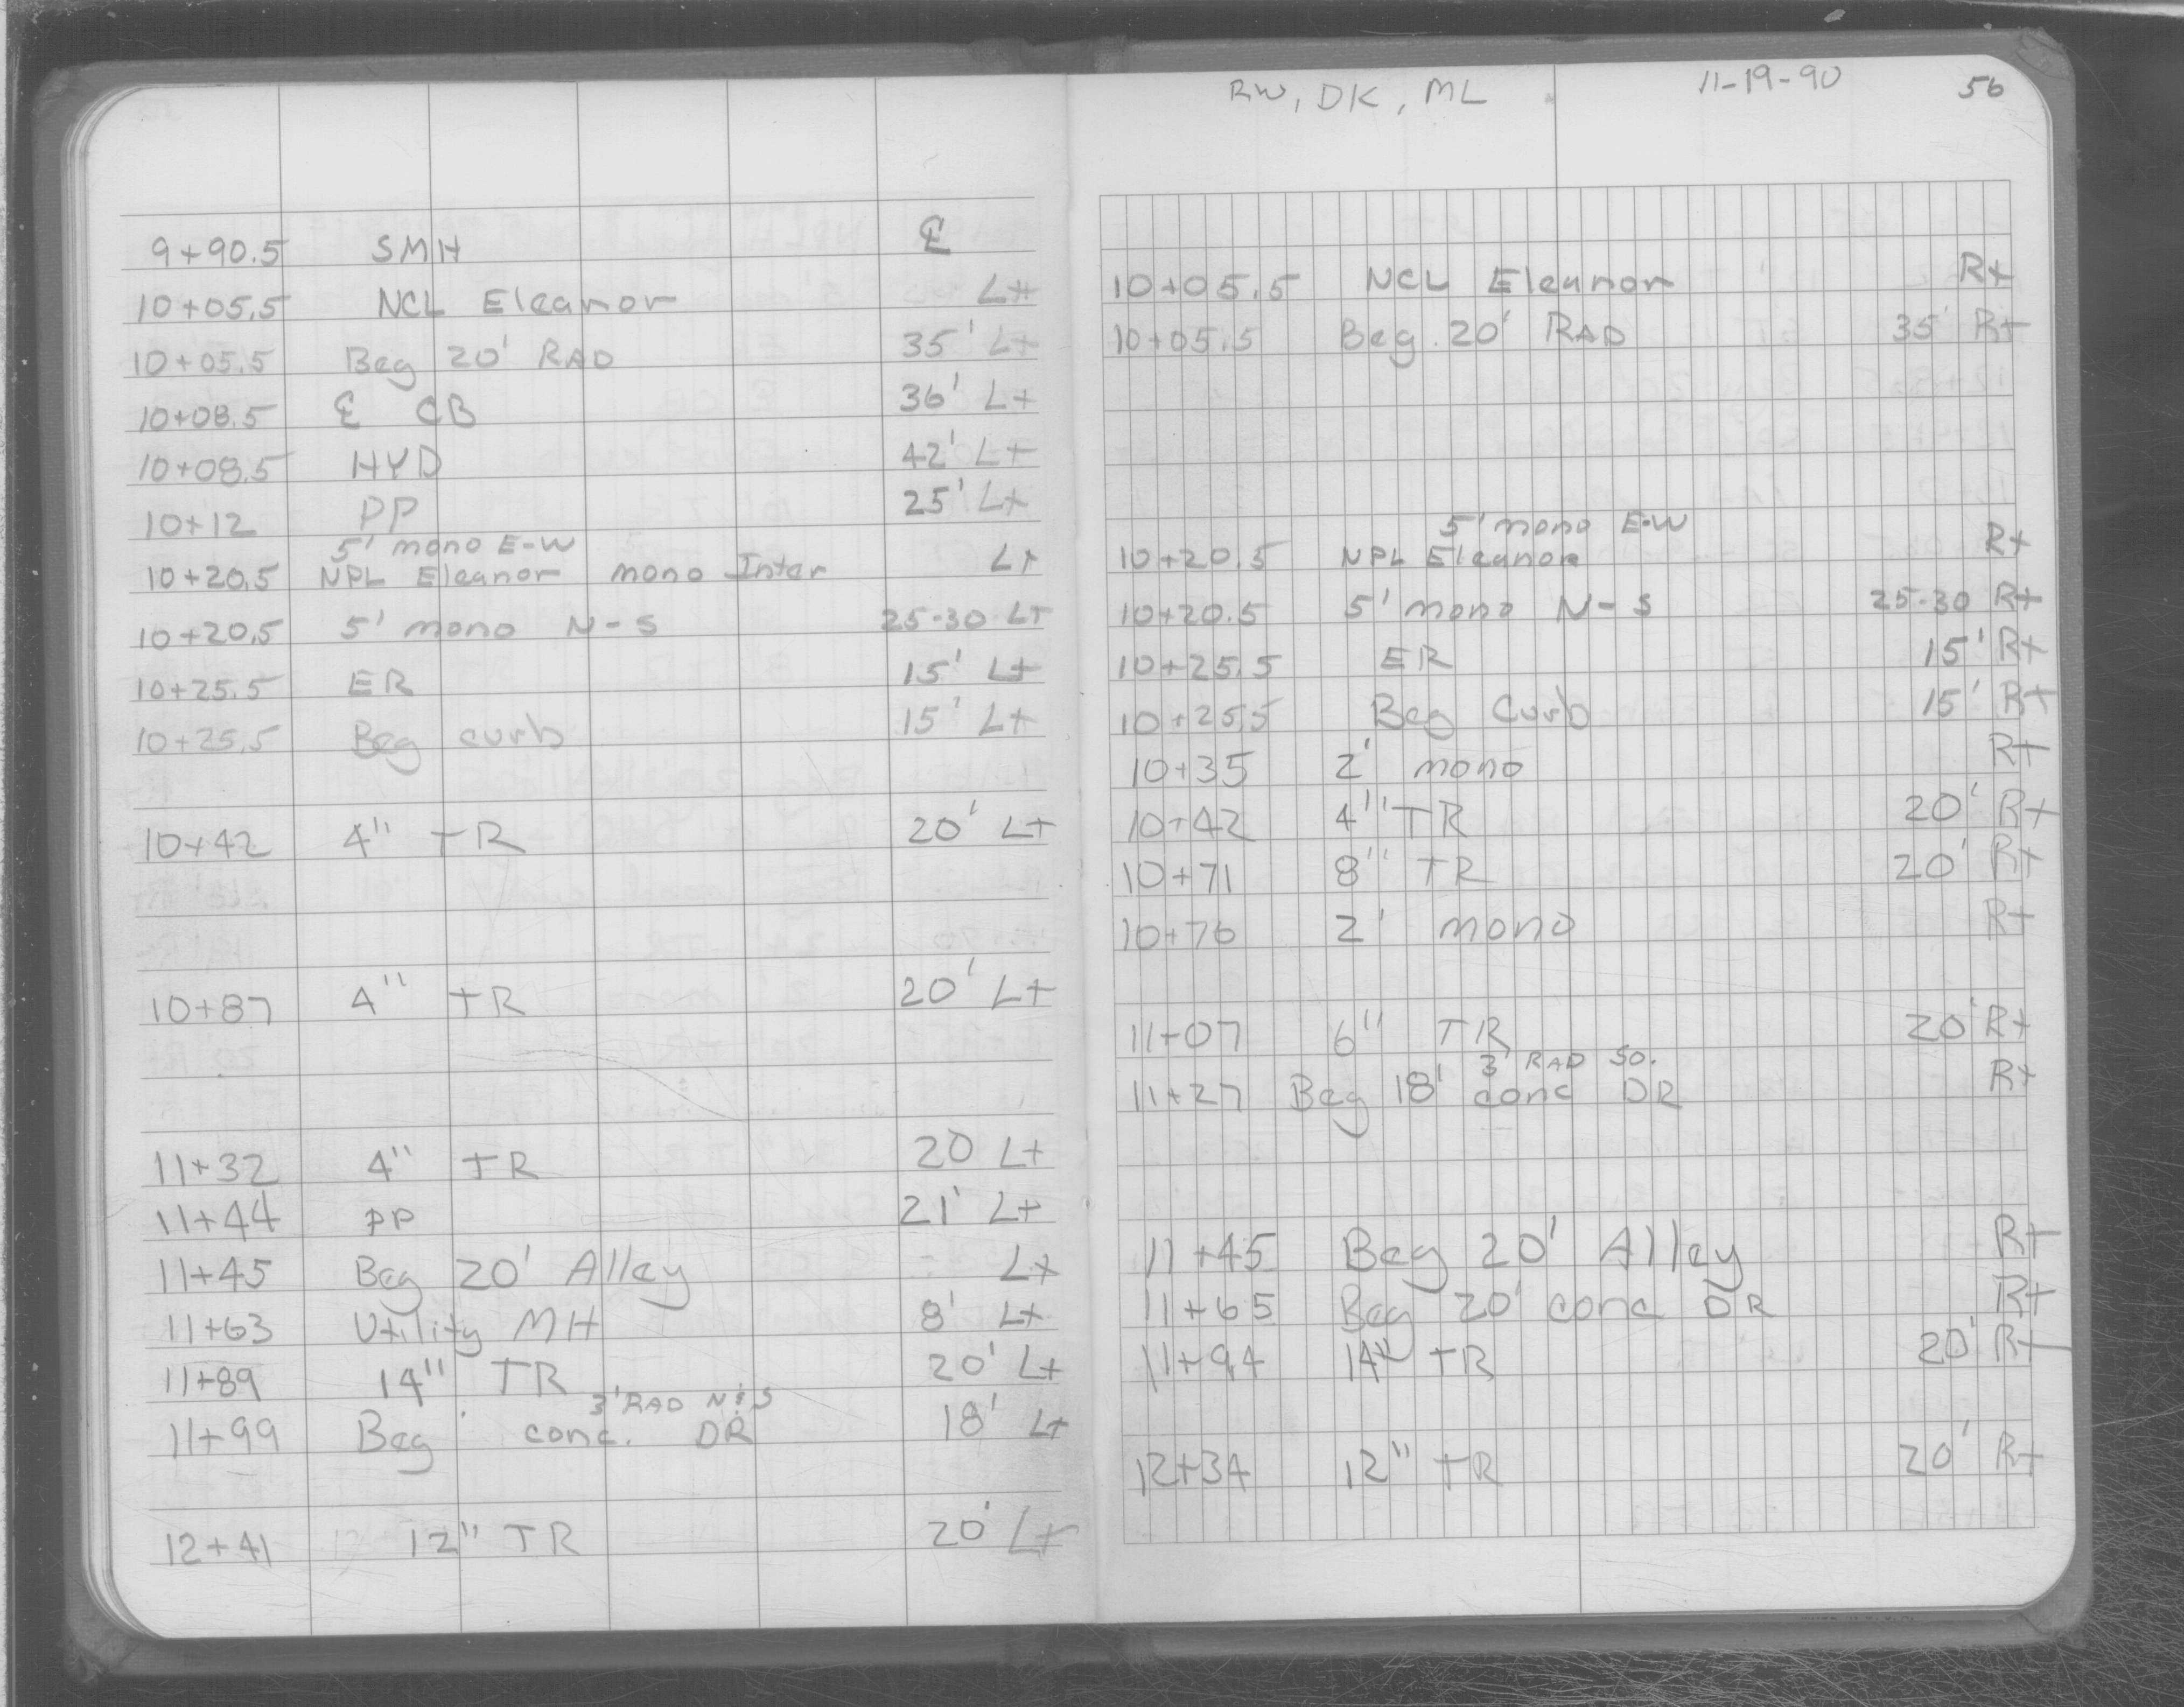 RW, DK, ML 11-19-90 56
9+90.5 SMH ℄
10+05.5 NCL Eleanor Lt
10+05.5 Beg 20' RAD 35' Lt
10+08.5 ℄ CB 36' Lt
10+08.5 HYD 42' Lt
10+12 PP 25' Lt
5' mono E-W
10+20.5 NPL Eleanor mono Inter Lt
10+20.5 5' mono N-S 25-30 Lt
10+25.5 ER 15' Lt
10+25.5 Beg curb 15' Lt
10+42 4" TR 20' Lt
10+87 4" TR 20' Lt
11+32 4" TR 20 Lt
11+44 PP 21' Lt
11+45 Beg 20' Alley Lt
11+63 Utility MH 8' Lt
11+89 14" TR 20' Lt
3' RAD N & S
11+99 Beg conc. DR 18' Lt
12+41 12" TR 20' Lt
10+05.5 NCL Eleanor Rt
10+05.5 Beg. 20' RAD 35' Rt
5' mono E-W
10+20.5 NPL Eleanor Rt
10+20.5 5' mono N-S 25-30 Rt
10+25.5 ER 15' Rt
10+25.5 Beg Curb 15' Rt
10+35 2' mono Rt
10+42 4" TR 20' Rt
10+71 8" TR 20' Rt
10+76 2' mono Rt
11+07 6" TR 20' Rt
3' RAD SO.
11+27 Beg 18' conc DR Rt
11+45 Beg 20' Alley Rt
11+65 Beg 20' conc DR Rt
11+94 14" TR 20' Rt
12+34 12" TR 20' Rt